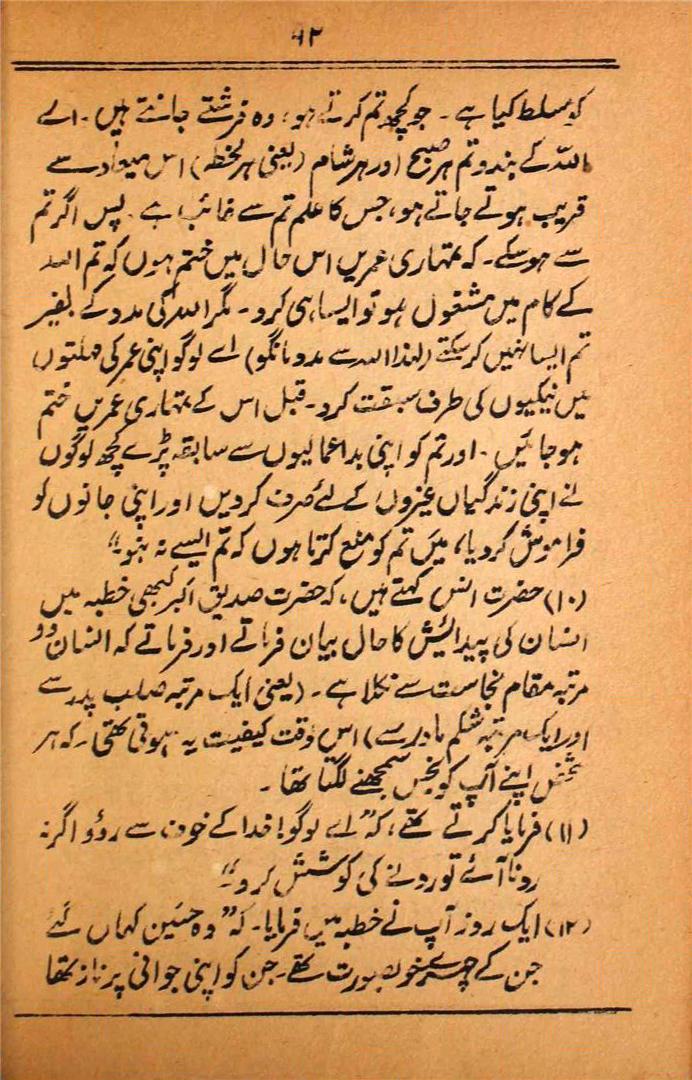 ۹۲
کو مسلط کیا ہے ۔ جو کچھ تم کرتے ہو، وہ فرشتے جانتے ہیں ۔ اے
اللہ کے بندو تم ہر صبح اور ہر شام (یعنی ہر لحظہ) اس میعاد سے
قریب ہوتے جاتے ہو، جس کا علم تم سے غائب ہے ۔ پس اگر تم
سے ہو سکے ۔ کہ تمہاری عمریں اس حال میں ختم ہوں کہ تم اللہ
کے کام میں مشغول ہو تو ایسا ہی کرو ۔ مگر اللہ کی مدد کے بغیر
تم ایسا نہیں کر سکتے (لہذا اللہ سے مدد مانگو) اے لوگو اپنی عمر کی مہلتوں
میں نیکیوں کی طرف سبقت کرو ۔ قبل اس کے تمہاری عمریں ختم
ہو جائیں ۔ اور تم کو اپنی بداعمالیوں سے سابقہ پڑے کچھ لوگوں
نے اپنی زندگیاں غیروں کے لئے صرف کر دیں اور اپنی جانوں کو
فراموش کر دیا، میں تم کو منع کرتا ہوں کہ تم ایسے نہ بنو“
(۱۰) حضرت انس کہتے ہیں، کہ حضرت صدیق اکبر کبھی خطبہ میں
انسان کی پیدائش کا حال بیان فرماتے اور فرماتے کہ انسان دو
مرتبہ مقام نجاست سے نکلا ہے ۔ (یعنی ایک مرتبہ صلب پدر سے
اور ایک مرتبہ شکم مادر سے) اس وقت کیفیت یہ ہوتی تھی ۔ کہ ہر
شخص اپنے آپ کو نجس سمجھنے لگتا تھا ۔
(۱۱) فرمایا کرتے تھے، کہ ”اے لوگو! خدا کے خوف سے روؤ اگر نہ
رونا آئے تو رونے کی کوشش کرو“
(۱۲) ایک روز آپ نے خطبہ میں فرمایا ۔ کہ ”وہ حسین کہاں گئے
جن کے چہرے خوبصورت تھے ۔ جن کو اپنی جوانی پر ناز تھا